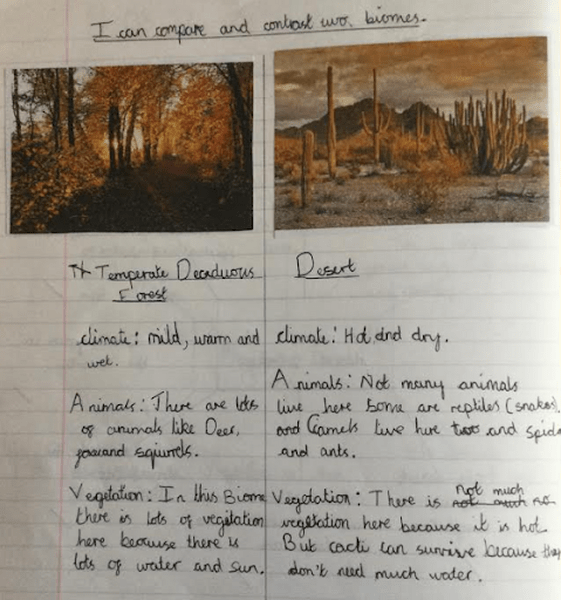 I can compare and contrast two. biomes.
Temperate Decaduous
Forest
climate: mild, warm and
wet.
Animals: There are lots
of animals like Deer,
and squirrels.
Vegetation: In this Biome
there is lots of vegitation
here because there is
lots of water and sun.
Desert
climate: Hot and dry.
Animals: Not many animals
live here some are reptiles (snakes)
and Camels live here too and spid
and ants.
Vegetation: There is Not much
vegetation here because it is hot.
But cacti can survive because they
don't need much water.